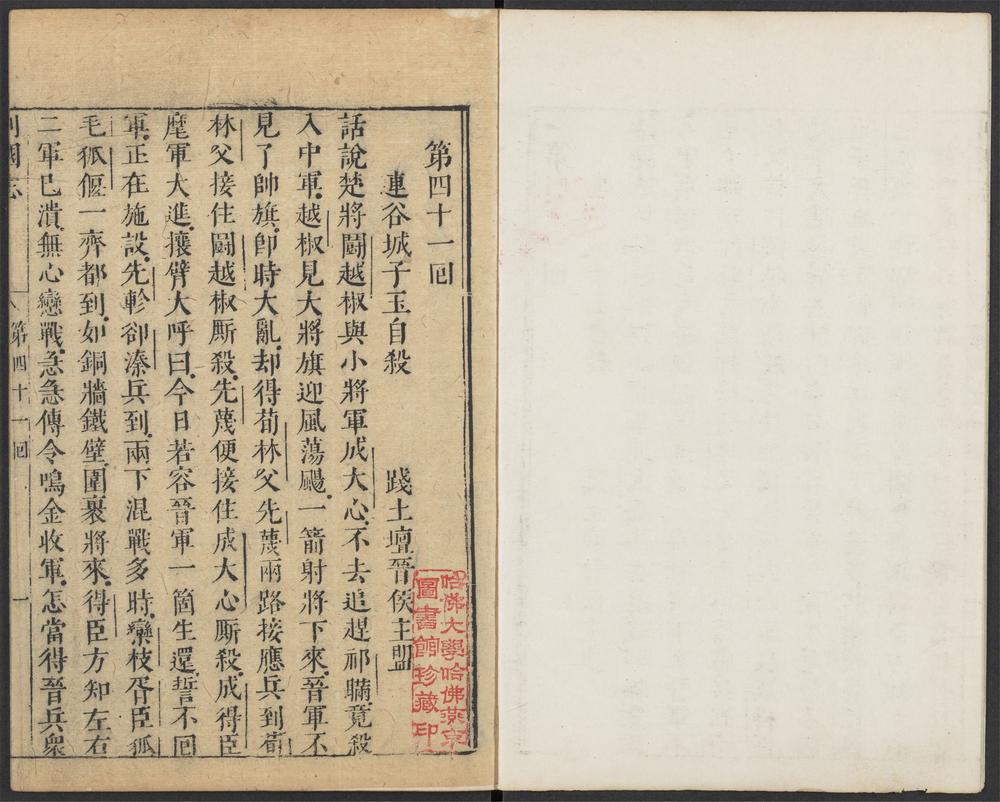 第四十一回
連谷城子玉自殺　踐土壇晉侯主盟
話說楚將鬪越椒與小將軍成大心不去追趕祁瞞竟殺
入中軍越椒見大將旗迎風蕩颺一箭射將下來晉軍不
見了帥旗卽時大亂却得荀林父先蔑兩路接應兵到荀
林父接住鬪越椒厮殺先蔑便接住成大心厮殺成得臣
麾軍大進攘臂大呼曰今日若容晉軍一箇生還誓不回
軍正在施設先軫郤溱兵到兩下混戰多時欒枝胥臣狐
毛狐偃一齊都到如銅牆鐵壁圍裹將來得臣方知左右
二軍已潰無心戀戰急急傳令鳴金收軍怎當得晉兵衆
列國志
第四十一回
一
哈佛大學哈佛燕京
圖書館珍藏印